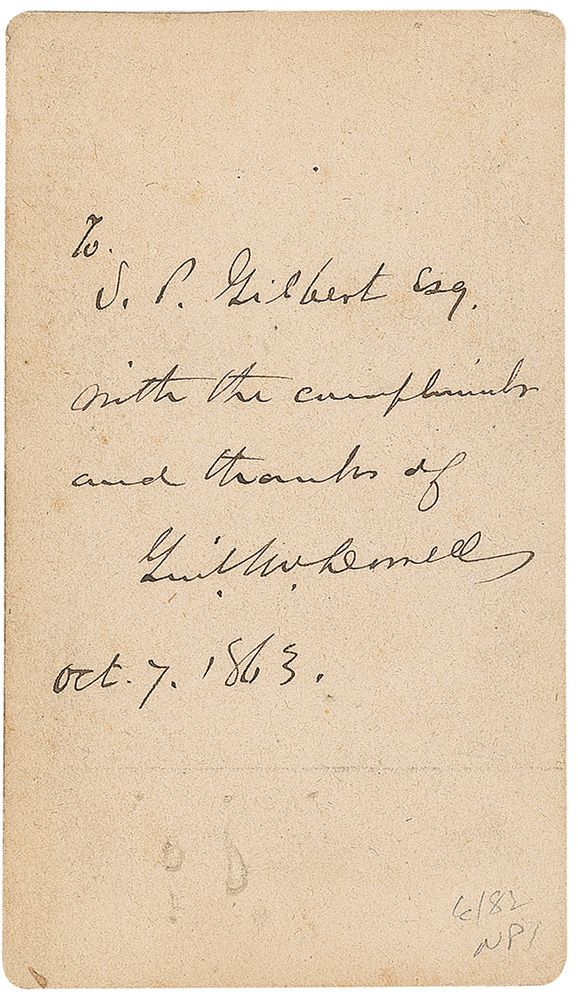 To.
S. P. Gilbert Esq.
with the compliments
and thanks of
McDowell
Oct. 7. 1863.
6/82